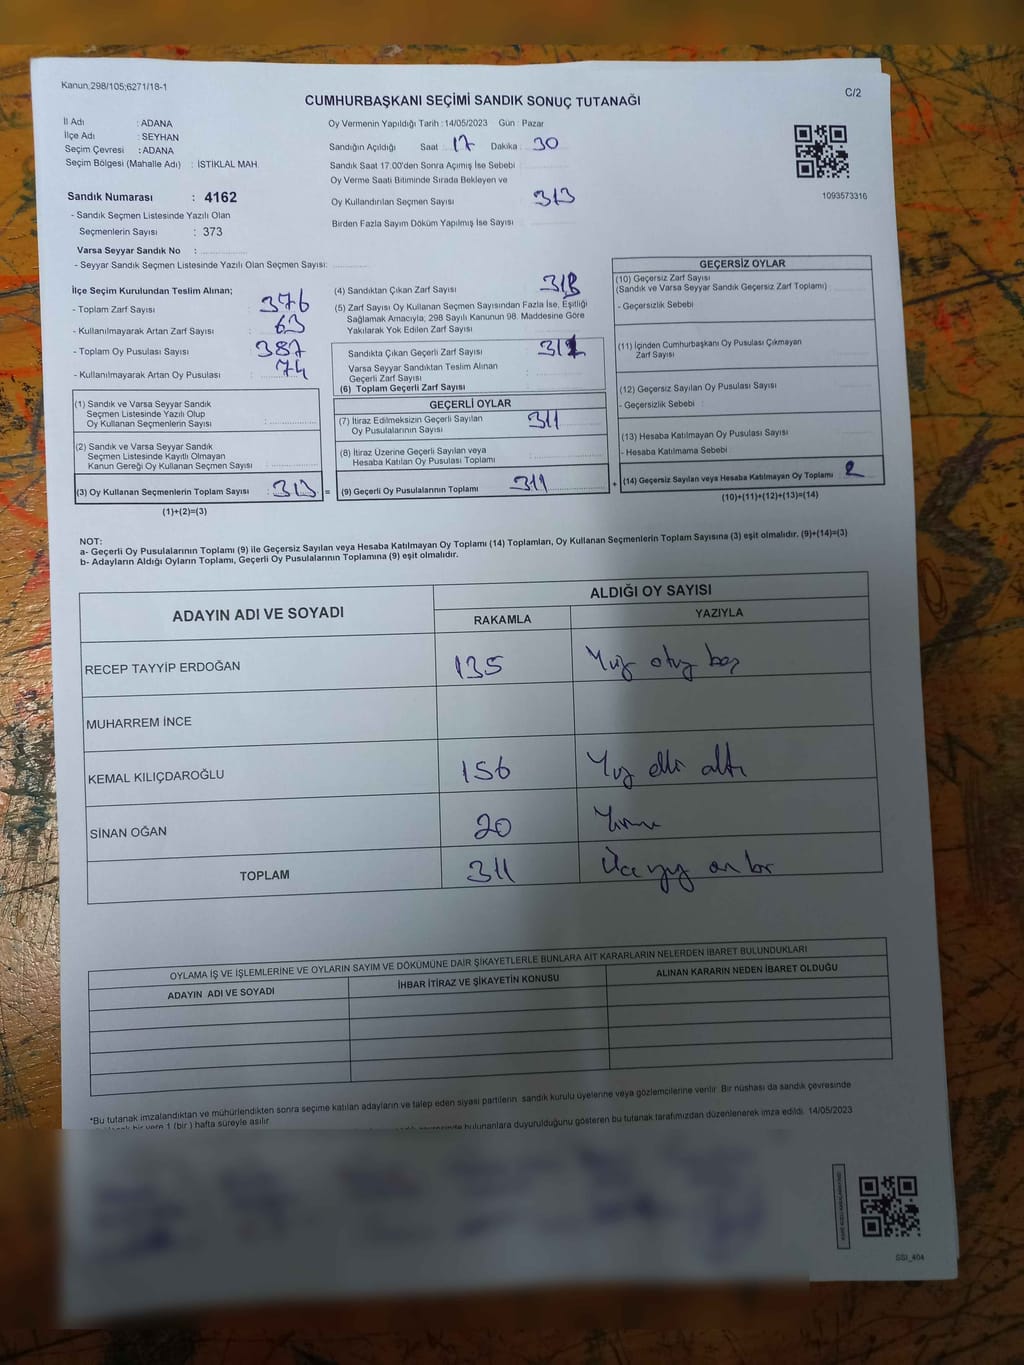 Kanun;298/105;6271/18-1
CUMHURBAŞKANI SEÇİMİ SANDIK SONUÇ TUTANAĞI
C/2
İl Adı : ADANA
İlçe Adı : SEYHAN
Seçim Çevresi : ADANA
Seçim Bölgesi (Mahalle Adı) : İSTİKLAL MAH.
Sandık Numarası : 4162
- Sandık Seçmen Listesinde Yazılı Olan
Seçmenlerin Sayısı : 373
Varsa Seyyar Sandık No :
- Seyyar Sandık Seçmen Listesinde Yazılı Olan Seçmen Sayısı:
Oy Vermenin Yapıldığı Tarih : 14/05/2023 Gün : Pazar
Sandığın Açıldığı Saat 17 Dakika : 30
Sandık Saat 17:00'den Sonra Açımış İse Sebebi :
Oy Verme Saati Bitiminde Sırada Bekleyen ve
Oy Kullandırılan Seçmen Sayısı 313
Birden Fazla Sayım Döküm Yapılmış İse Sayısı :
1093573316
İlçe Seçim Kurulundan Teslim Alınan;
- Toplam Zarf Sayısı : 376
- Kullanılmayarak Artan Zarf Sayısı : 63
- Toplam Oy Pusulası Sayısı : 387
- Kullanılmayarak Artan Oy Pusulası : 74
(1) Sandık ve Varsa Seyyar Sandık
Seçmen Listesinde Yazılı Olup
Oy Kullanan Seçmenlerin Sayısı :
(2) Sandık ve Varsa Seyyar Sandık
Seçmen Listesinde Kayıtlı Olmayan
Kanun Gereği Oy Kullanan Seçmen Sayısı :
(3) Oy Kullanan Seçmenlerin Toplam Sayısı : 313 =
(1)+(2)=(3)
(4) Sandıktan Çıkan Zarf Sayısı :
(5) Zarf Sayısı Oy Kullanan Seçmen Sayısından Fazla İse, Eşitliği
Sağlamak Amacıyla; 298 Sayılı Kanunun 98. Maddesine Göre
Yakılarak Yok Edilen Zarf Sayısı :
Sandıkta Çıkan Geçerli Zarf Sayısı :
Varsa Seyyar Sandıktan Teslim Alınan
Geçerli Zarf Sayısı :
(6) Toplam Geçerli Zarf Sayısı :
GEÇERLİ OYLAR
(7) İtiraz Edilmeksizin Geçerli Sayılan
Oy Pusulalarının Sayısı : 311
(8) İtiraz Üzerine Geçerli Sayılan veya
Hesaba Katılan Oy Pusulası Toplamı :
(9) Geçerli Oy Pusulalarının Toplamı : 311 +
GEÇERSİZ OYLAR
(10) Geçersiz Zarf Sayısı
(Sandık ve Varsa Seyyar Sandık Geçersiz Zarf Toplamı) :
- Geçersizlik Sebebi :
(11) İçinden Cumhurbaşkanı Oy Pusulası Çıkmayan
Zarf Sayısı :
(12) Geçersiz Sayılan Oy Pusulası Sayısı :
- Geçersizlik Sebebi :
(13) Hesaba Katılmayan Oy Pusulası Sayısı :
- Hesaba Katılmama Sebebi :
(14) Geçersiz Sayılan veya Hesaba Katılmayan Oy Toplamı : 2
(10)+(11)+(12)+(13)=(14)
NOT:
a- Geçerli Oy Pusulalarının Toplamı (9) ile Geçersiz Sayılan veya Hesaba Katılmayan Oy Toplamı (14) Toplamları, Oy Kullanan Seçmenlerin Toplam Sayısına (3) eşit olmalıdır. (9)+(14)=(3)
b- Adayların Aldığı Oyların Toplamı, Geçerli Oy Pusulalarının Toplamına (9) eşit olmalıdır.
ADAYIN ADI VE SOYADI ALDIĞI OY SAYISI
RAKAMLA YAZIYLA
RECEP TAYYİP ERDOĞAN 135 Yüz otuz beş
MUHARREM İNCE
KEMAL KILIÇDAROĞLU 156 Yüz elli altı
SİNAN OĞAN 20 Yirmi
TOPLAM 311 Üçyüz on bir
OYLAMA İŞ VE İŞLEMLERİNE VE OYLARIN SAYIM VE DÖKÜMÜNE DAİR ŞİKAYETLERLE BUNLARA AİT KARARLARIN NELERDEN İBARET BULUNDUKLARI
ADAYIN ADI VE SOYADI İHBAR İTİRAZ VE ŞİKAYETİN KONUSU ALINAN KARARIN NEDEN İBARET OLDUĞU
*Bu tutanak imzalandıktan ve mühürlendikten sonra seçime katılan adayların ve talep eden siyasi partilerin sandık kurulu üyelerine veya gözlemcilerine verilir. Bir nüshası da sandık çevresinde
bir yere 1 (bir ) hafta süreyle asılır.
bulunanlara duyurulduğunu gösteren bu tutanak tarafımızdan düzenlenerek imza edildi. 14/05/2023
SSI_404